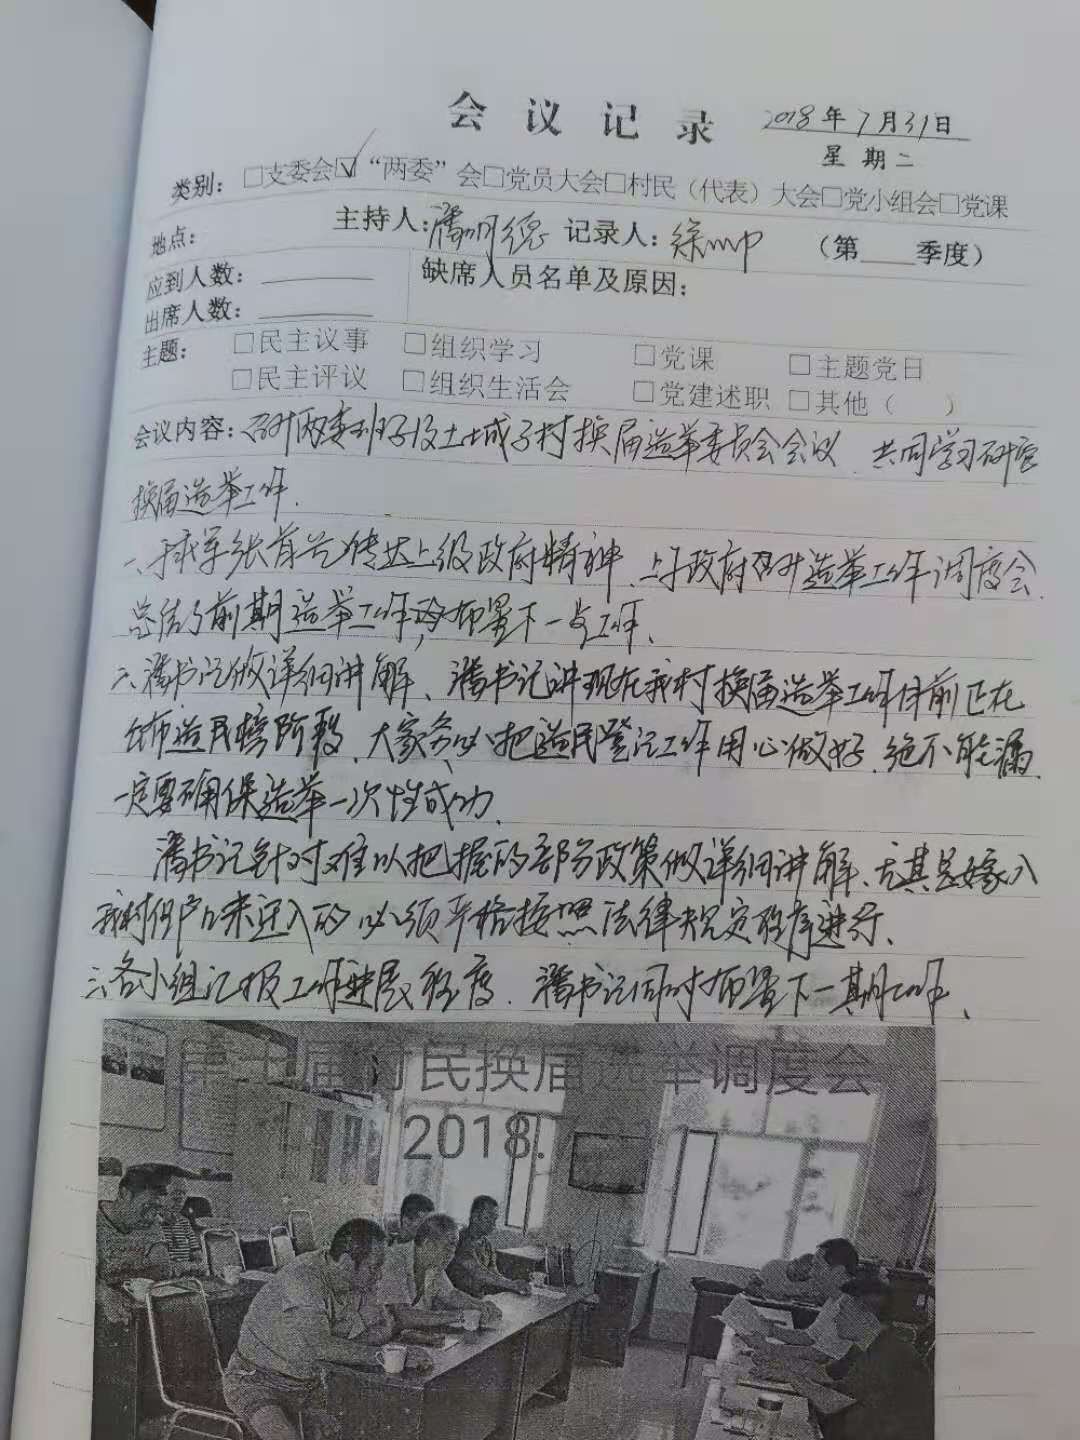 会议记录 2018年7月31日
星期二
类别：□支委会☑“两委”会□党员大会□村民（代表）大会□党小组会□党课
地点： 主持人：潘明德 记录人：徐 （第 季度）
应到人数： 缺席人员名单及原因：
出席人数：
主题： □民主议事 □组织学习 □党课 □主题党日
□民主评议 □组织生活会 □党建述职 □其他（ ）
会议内容：召开两委班子及土城子村换届选举委员会会议、共同学习研究
换届选举工作.
一、 张 传达上级政府精神、 政府召开选举工作调度会
总结了前期选举工作, 布置下一步工作、
二、潘书记做详细讲解、潘书记讲现在我村换届选举工作目前正在
公布选民榜阶段、大家务必把选民登记工作用心做好、绝不能漏、
一定要确保选举一次性成功.
潘书记针对难以把握的部分政策做详细讲解、尤其是嫁入
我村但户口未迁入的必须严格按照法律规定程序进行、
三、各小组汇报工作进展程度、潘书记同时布置下一期工作、
第十届村民换届选举调度会
2018.